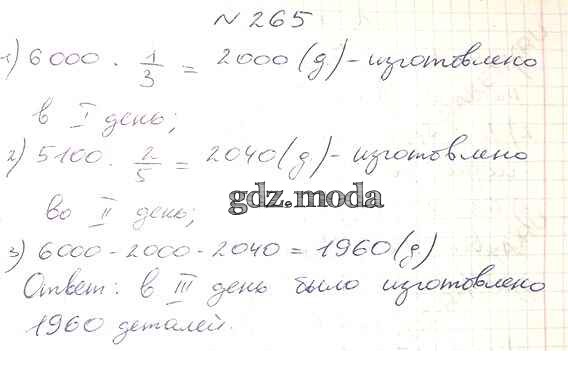 № 265
1) 6000 · 1/3 = 2000 (д) - изготовлено
в I день;
2) 5100 · 2/5 = 2040 (д) - изготовлено
во II день;
gdz.moda
3) 6000 - 2000 - 2040 = 1960 (д)
Ответ: в III день было изготовлено
1960 деталей.